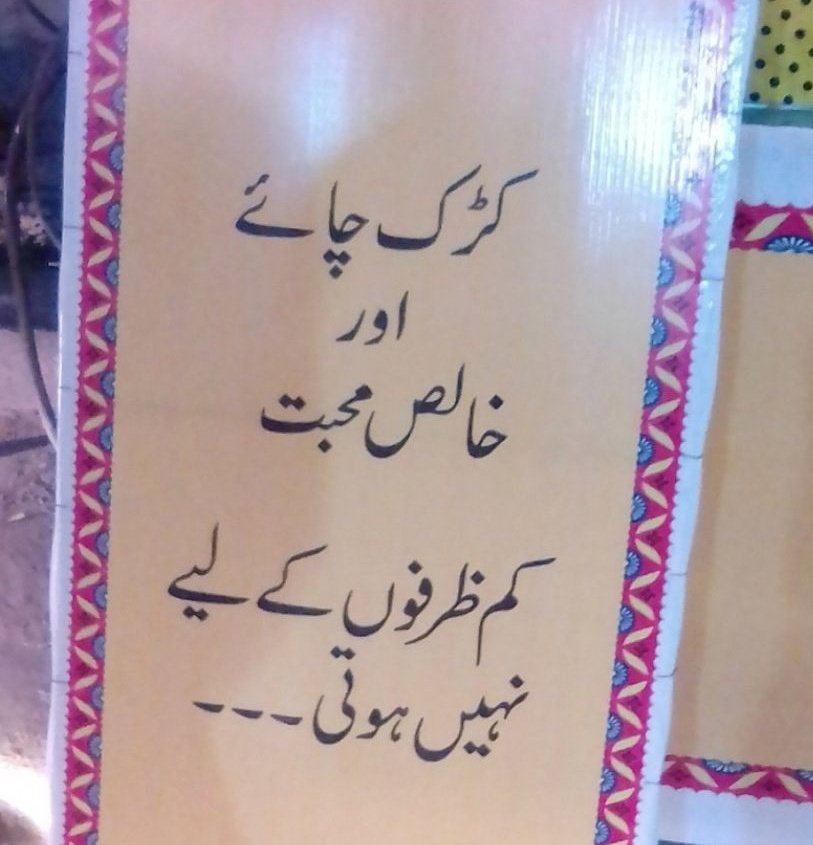 کڑک چائے
اور
خالص محبت
کم ظرفوں کے لیے
نہیں ہوتی ۔۔۔